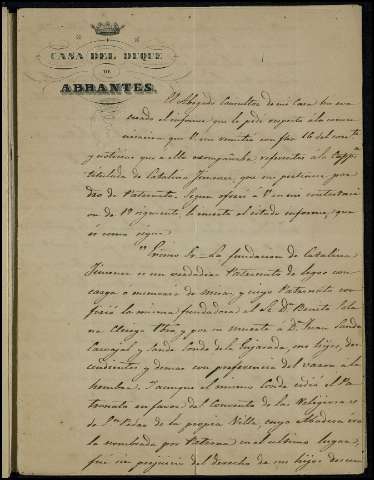 CASA DEL DUQUE
DE
ABRANTES.
El Abogado Consultor de mi Casa ha eva-
cuado el informe que le pedí respecto á la comu-
nicacion que V. me remitió con fha 16 del corrte
y noticias que a ella acompañaba, referentes a la Capp.ª
titulada de Catalina Jimenez, que me pertenece por
de Patronato. Segun ofrecí a V. en mi contestaci-
on de 19 siguiente le inserto el citado informe, que
es como sigue.
"Excmo Sr = La fundacion de Catalina
Jimenez es un verdadero Patronato de legos con
carga o memoria de misas, y cuyo Patronato con-
firió la misma fundadora al Sr Dn Benito
Clerigo Pbro, y por su muerte á Dn Juan
Carvajal y Sande Conde de la Enjarada, sus hijos, des-
cendientes y demas con preferencia del varon a la
hembra. Y aunque el mismo Conde cedió el Pa-
tronato en favor del Convento de las Religiosas
de Sn Pedro de la propia Villa, cuya Abadesa era
la nombrada por Patrona en el ultimo lugar,
fué sin perjuicio del derecho de sus hijos descen-